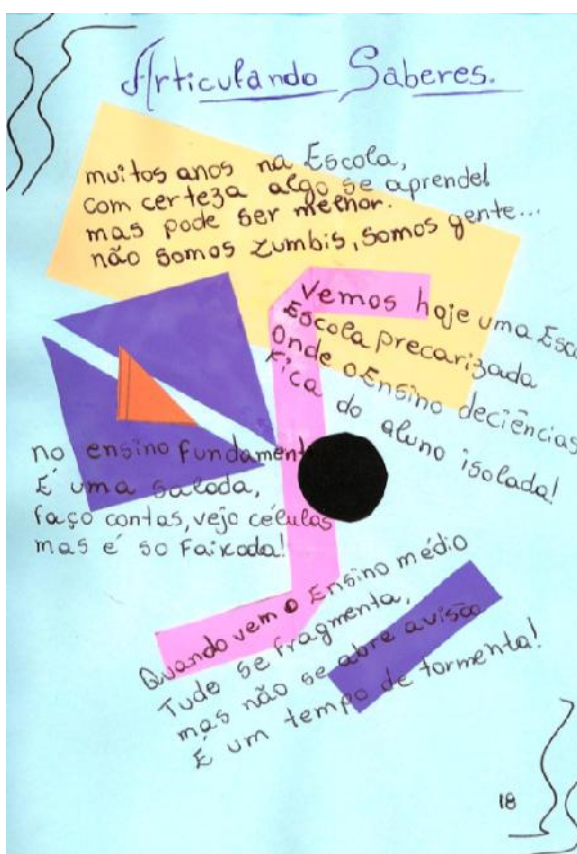 Articulando Saberes.
muitos anos na Escola,
com certeza algo se aprende!
mas pode ser melhor.
não somos zumbis, somos gente...
Vemos hoje uma Esc
Escola precarizada
Onde o Ensino deciências
Fica do aluno isolada!
no ensino fundament
É uma salada,
faço contas, vejo células
mas é so Faixada!
Quando vem o Ensino médio
Tudo se fragmenta,
mas não se abre a visão
É um tempo de tormenta!
18